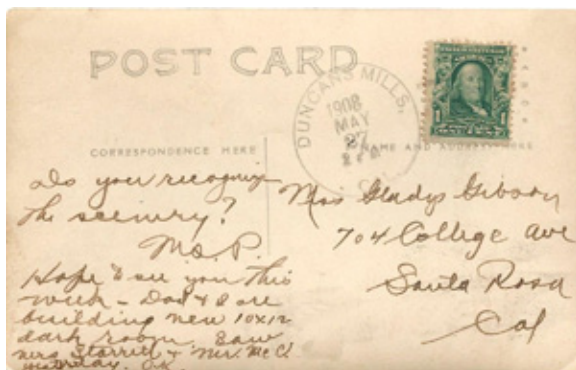 POST CARD
DUNCANS MILLS,
1908
MAY
27
CORRESPONDENCE HERE
NAME AND ADDRESS HERE
1
do you recognize
the scenery?
Ms. P.
Hope to see you this
week - Dad & I are
building new 10x12
dark room. Saw
Mrs Starrett & Mr. McC
yesterday.
Miss Gladys Gibson
704 College Ave
Santa Rosa
Cal